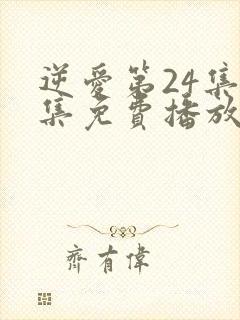 逆愛第24集
集免費播放
齊有偉